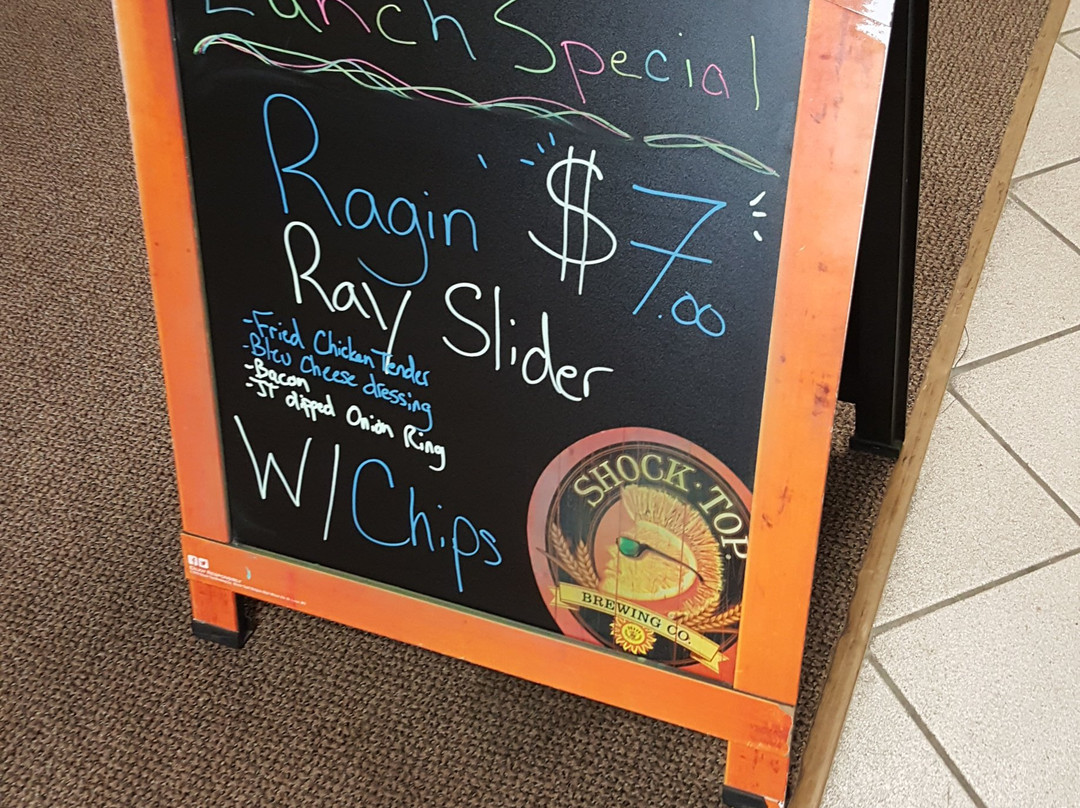 Lunch Special
Ragin $7.00
Ray Slider
-Fried Chicken Tender
-Bleu Cheese dressing
-Bacon
-JT dipped Onion Ring
W/Chips
SHOCK·TOP
BREWING CO.